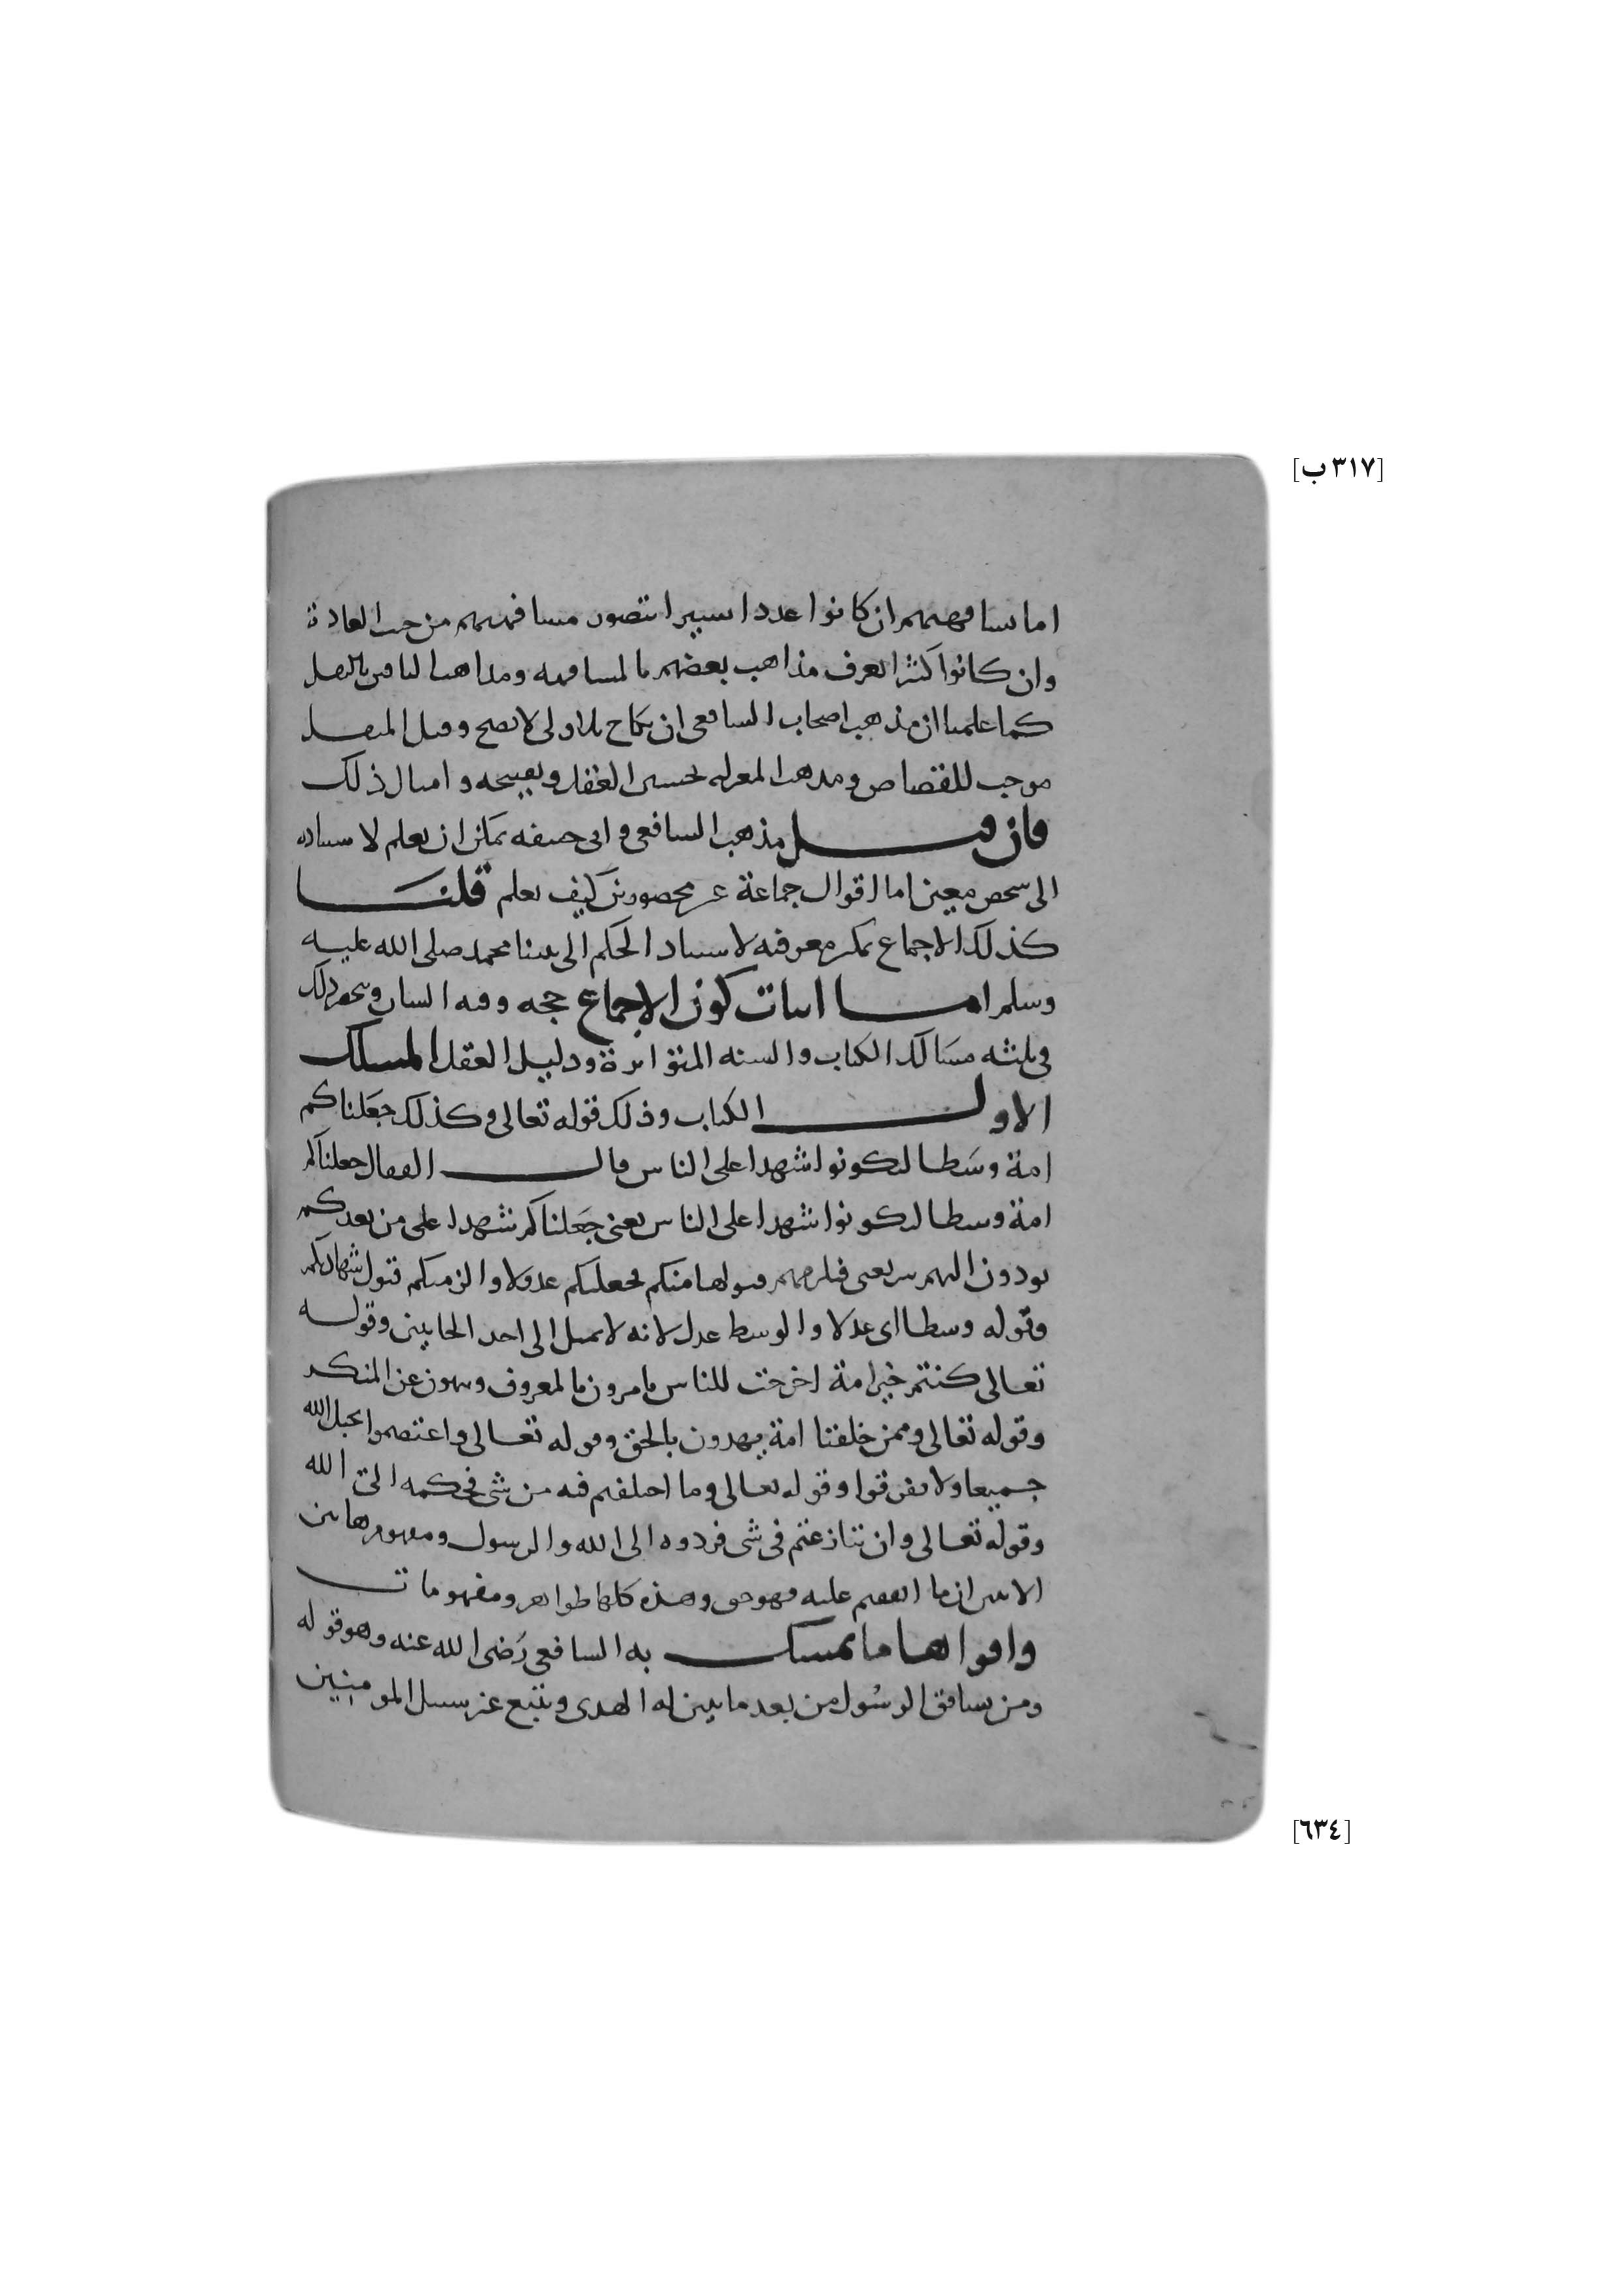 [٣١٧ ب]
اما بمشافهتهم ان كانوا عددا يسيرا تتصور مشافهتهم من حيث العادة
وان كانوا كثيرا تعرف مذاهب بعضهم بالمشافهة ومذاهب الباقين بالنقل
كما علمنا ان مذهب اصحاب الشافعي ان نكاح بلا ولي لا يصح وقتل المثقل
موجب للقصاص ومذهب المعتزلة تحسين العقل وتقبيحه وامثال ذلك
فان قيل مذهب الشافعي وابي حنيفة يمكن ان يعلم لاستناده
الى شخص معين اما اقوال جماعة غير محصورين كيف تعلم قلنا
كذلك الاجماع يمكن معرفته لاستناد الحكم الى نبينا محمد صلى الله عليه
وسلم اما اثبات كون الاجماع حجة وفيه الشان وينحصر ذلك
في ثلثة مسالك الكتاب والسنة المتواترة ودليل العقل المسلك
الاول الكتاب وذلك قوله تعالى وكذلك جعلناكم
امة وسطا لتكونوا شهدا على الناس قال القفال جعلناكم
امة وسطا لتكونوا شهدا على الناس يعني جعلناكم شهدا على من بعدكم
تودون اليهم يعني فيلزمهم قبولها منكم فجعلكم عدولا والزمكم قبول شهادتكم
وقوله وسطا اي عدلا والوسط عدل لانه لا يميل الى احد الجانبين وقوله
تعالى كنتم خير امة اخرجت للناس تامرون بالمعروف وتنهون عن المنكر
وقوله تعالى وممن خلقنا امة يهدون بالحق وقوله تعالى واعتصموا بحبل الله
جميعا ولا تفرقوا وقوله تعالى وما اختلفتم فيه من شي فحكمه الى الله
وقوله تعالى وان تنازعتم في شي فردوه الى الله والرسول ومفهوم هاتين
الايتين ان ما اتفقتم عليه فهو حق وهذه كلها ظواهر ومفهومات
واقواها ما تمسك به الشافعي رضى الله عنه وهو قوله
ومن يشاقق الرسول من بعد ما تبين له الهدى ويتبع غير سبيل المومنين
[٦٣٤]